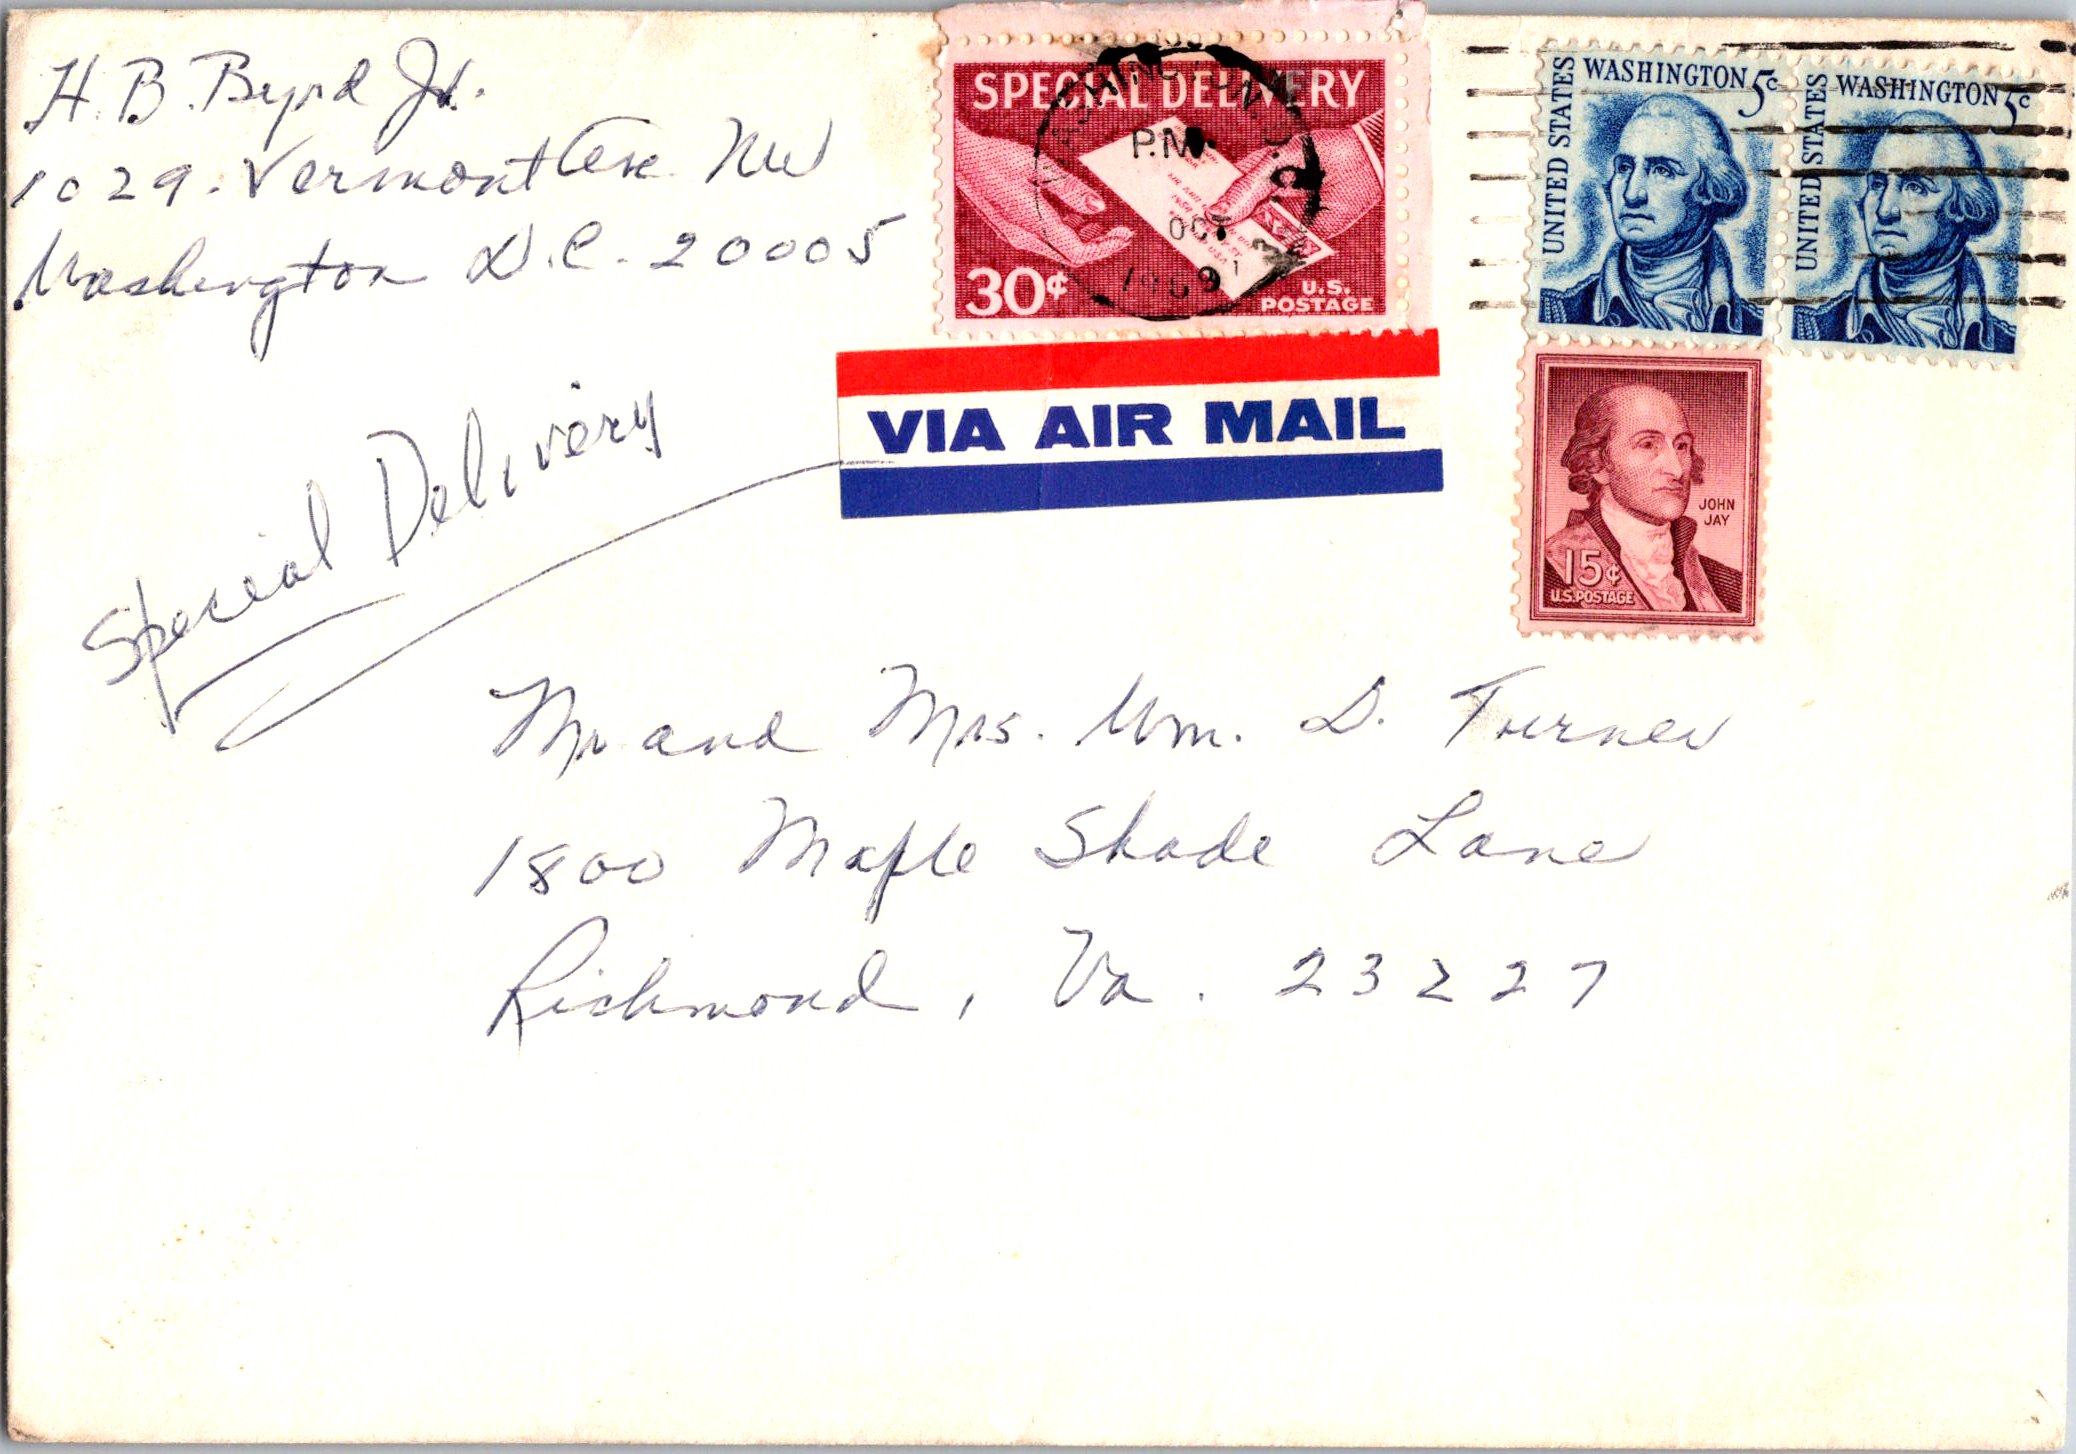 H. B. Byrd Jr.
1029. Vermont Ave NW
Washington D.C. 20005
SPECIAL DELIVERY
30¢
U.S.
POSTAGE
WASHINGTON, D.C.
P.M.
OCT
1969
UNITED STATES
WASHINGTON 5c
UNITED STATES
WASHINGTON 5c
VIA AIR MAIL
JOHN
JAY
15¢
U.S. POSTAGE
Special Delivery
Mr and Mrs. Wm. D. Turner
1800 Maple Shade Lane
Richmond, Va. 23227